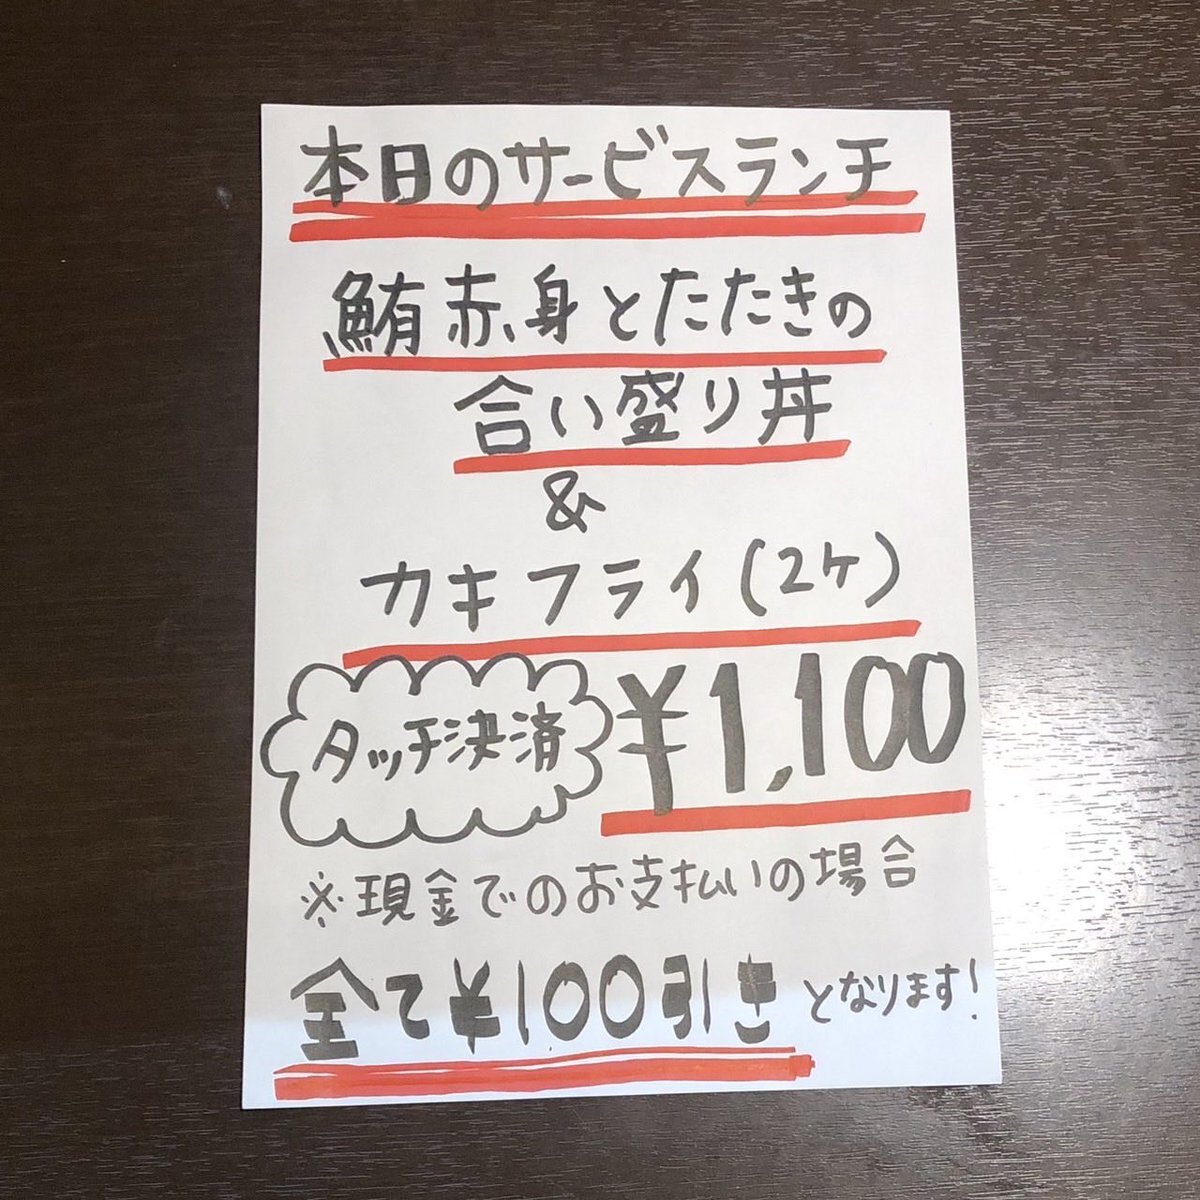 本日のサービスランチ
鮪赤身とたたきの
合い盛り丼
&
カキフライ(2ケ)
タッチ決済 ¥1,100
※現金でのお支払いの場合
全て¥100引きとなります!